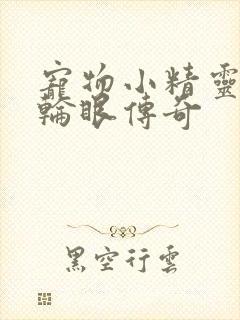 寵物小精靈
輪眼傳奇
黑空行雲